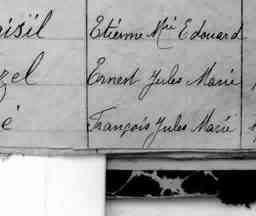 aisïl Etienne Mie Edouard
zel Ernest Jules Marie
é François Jules Marie